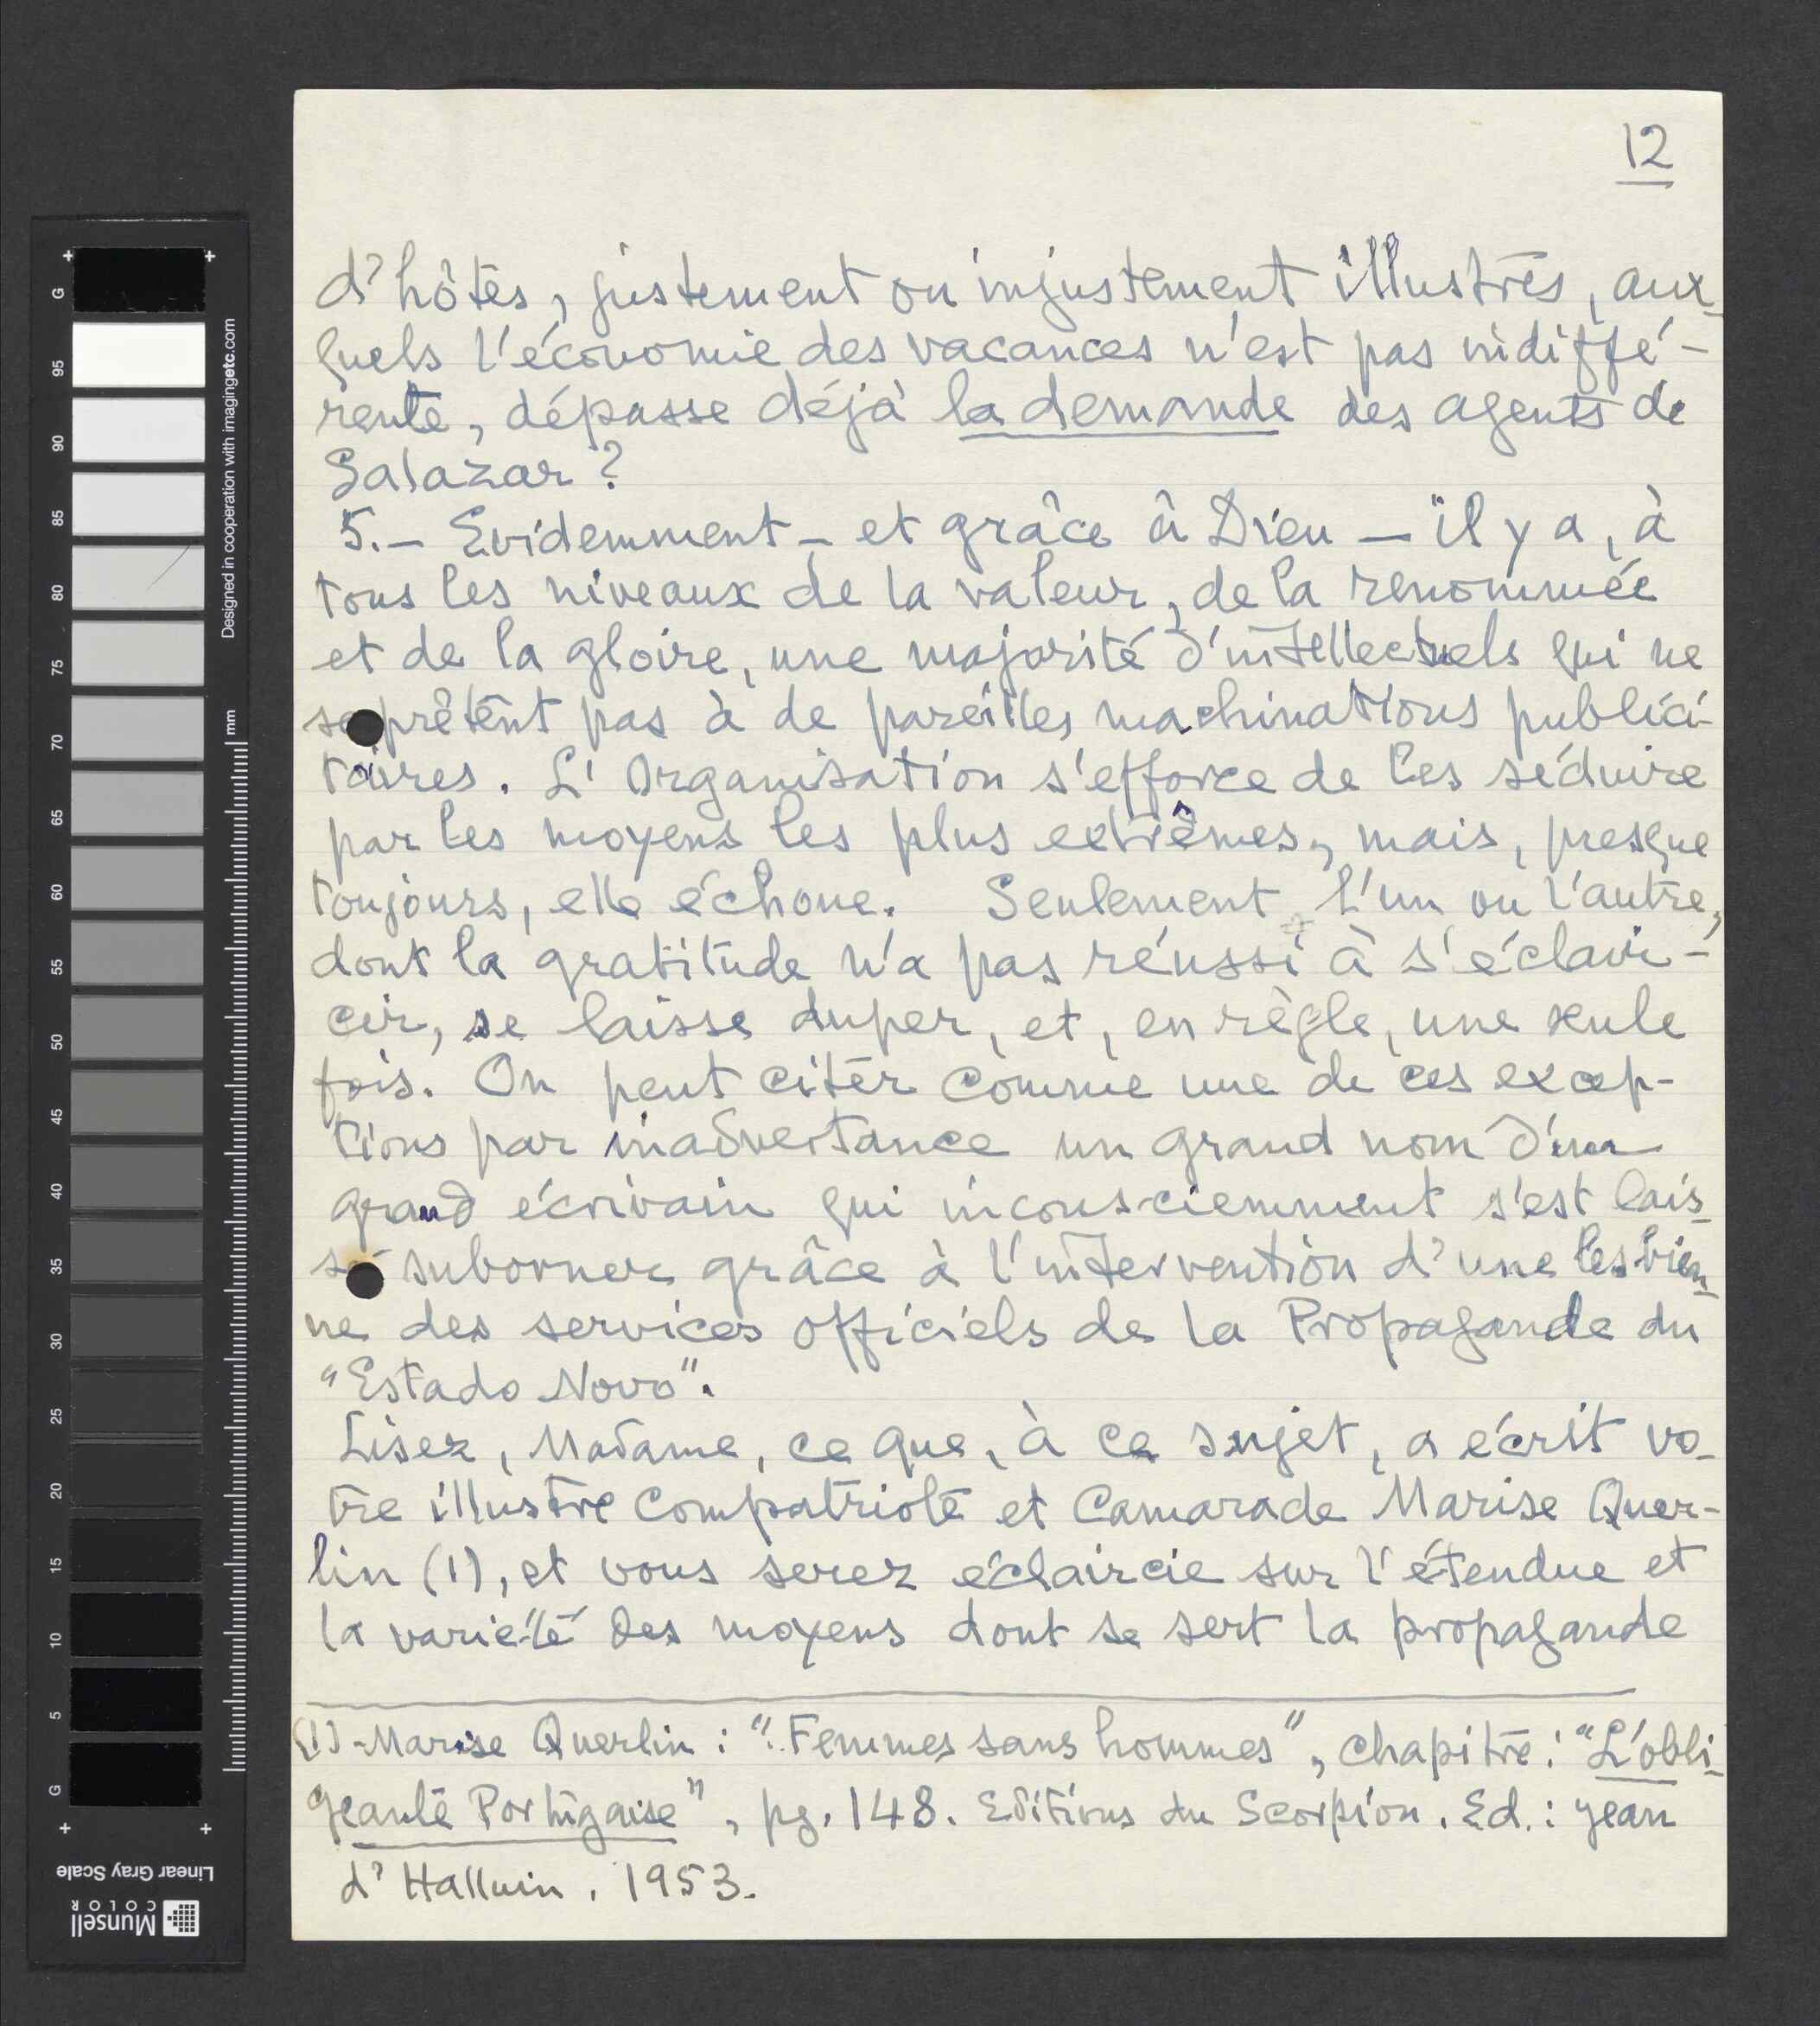 12
d'hôtes, justement ou injustement illustres, aux-
quels l'économie des vacances n'est pas indiffé-
rente, dépasse déjà la demande des agents de
Salazar ?
5.- Evidemment - et grâce à Dieu - il y a, à
tous les niveaux de la valeur, de la renommée
et de la gloire, une majorité d'intellectuels qui ne
se prêtent pas à de pareilles machinations publici-
taires. L'Organisation s'efforce de les séduire
par les moyens les plus extrêmes, mais, presque
toujours, elle échoue. Seulement l'un ou l'autre,
dont la gratitude n'a pas réussi à s'éclair-
cir, se laisse duper, et, en règle, une seule
fois. On peut citer comme une de ces excep-
tions par inadvertance un grand nom d'un
grand écrivain qui inconsciemment s'est lais-
sé suborner grâce à l'intervention d'une lesbien-
ne des services officiels de la Propagande du
"Estado Novo".
Lisez, Madame, ce que, à ce sujet, a écrit vo-
tre illustre compatriote et Camarade Marise Quer-
lin (1), et vous serez éclaircie sur l'étendue et
la variété des moyens dont se sert la propagande
(1)-Marise Querlin : "Femmes sans hommes", chapitre : "L'obli-
geante Portugaise", pg. 148. Editions du Scorpion. Ed.: Jean
d'Halluin. 1953.
G
95
90
85
80
75
70
65
60
55
50
45
40
35
30
25
20
15
10
5
G
mm
Designed in cooperation with imagingetc.com
Linear Gray Scale
Munsell
COLOR